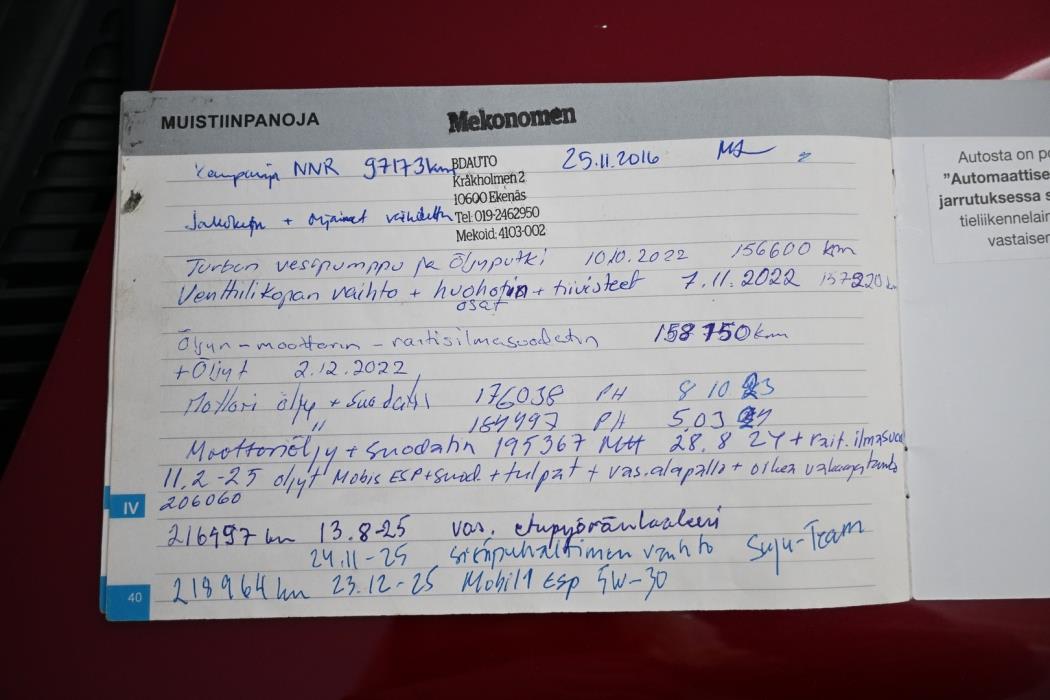 MUISTIINPANOJA Mekonomen
Kampanja NNR 97173km BDAUTO 25.11.2016
Kråkholmen 2
10600 Ekenäs
Jakohihna + ohjaimet vaihdettu Tel: 019-2462950
Mekoid: 4103-002
Turbon vesipumppu ja Öljyputki 10.10.2022 156600 km
Venttiilikopan vaihto + huohotin + tiivisteet 7.11.2022 157220 km
osat
Öljyn-moottorin-raitisilmasuodatin 158750km
+Öljyt 2.12.2022
Mottori öljy + Suodatin 176038 PH 8 10 23
" PH 5.03 24
Moottoriöljy + Suodatin 195367 MH 28.8 24 + rait. ilmasuod
11.2-25 öljyt Mobil ESP+suod. + tulpat + vas. alapallo + oikea
206060
216497 km 13.8-25 vas. etupyöränlaakeri
24.11-25 sisäpuhaltimen vaihto Suju-Team
218964 km 23.12-25 Mobil1 ESP 5W-30
IV
40
Autosta on po
"Automaattise
jarrutuksessa s
tieliikennelain
vastaisen